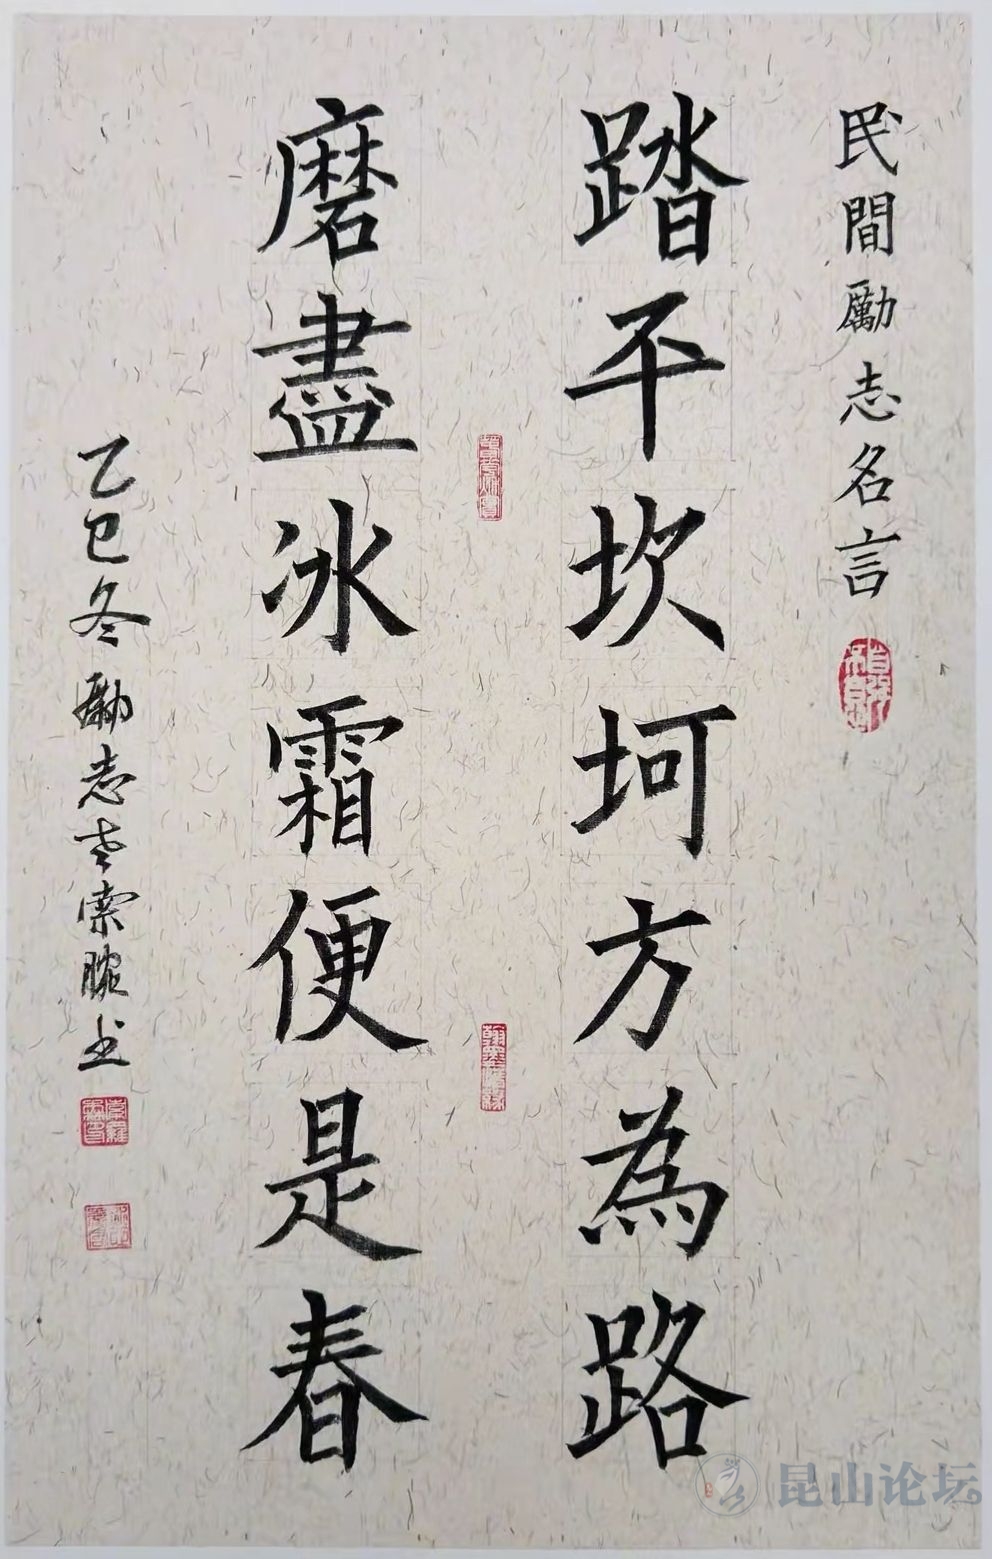 民間勵志名言
踏平坎坷方為路
磨盡冰霜便是春
乙巳冬勵志老宋腕书
昆山论坛